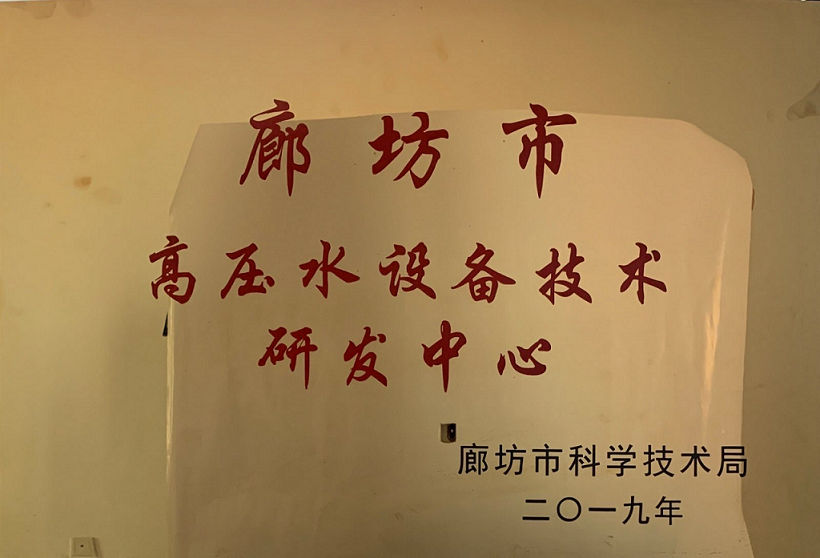 廊坊市
高压水设备技术
研发中心
廊坊市科学技术局
二〇一九年